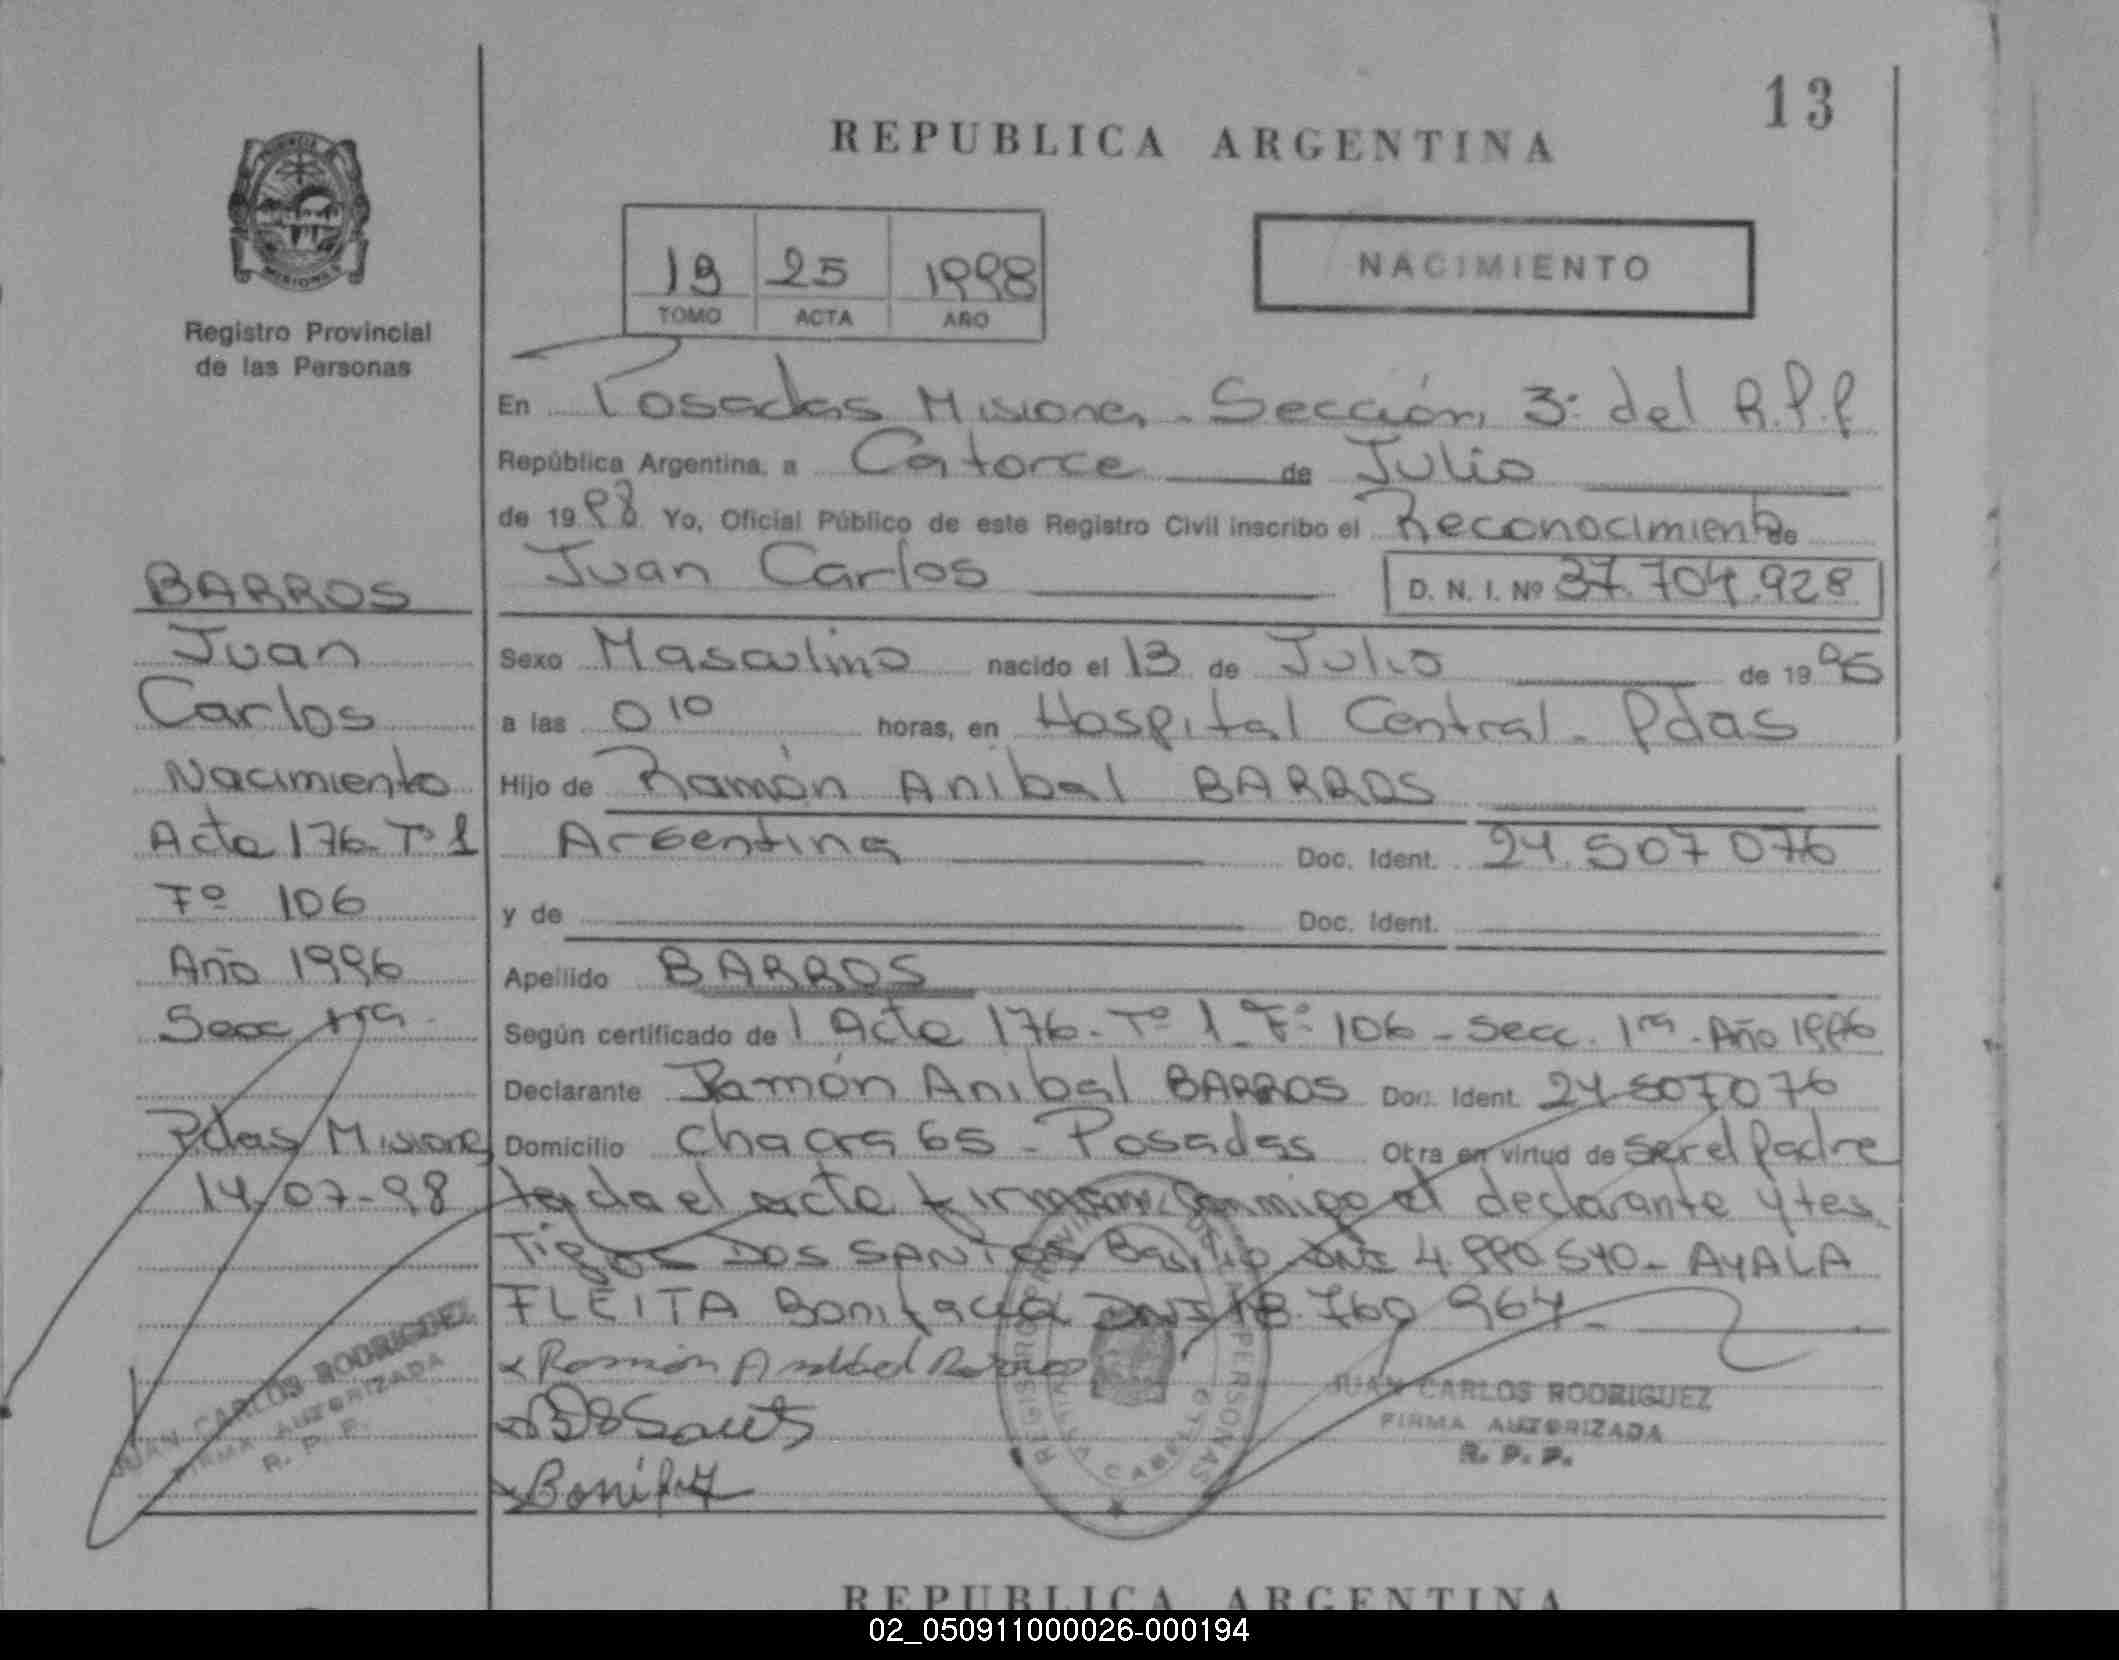 13
REPUBLICA ARGENTINA
19 25 1998
TOMO ACTA AÑO
NACIMIENTO
Registro Provincial
de las Personas
En Posadas Misiones - Sección 3ª del R.P.P
República Argentina, a Catorce de Julio
de 1998 Yo, Oficial Público de este Registro Civil inscribo el Reconocimiento de
Juan Carlos D. N. I. Nº 37.704.928
Sexo Masculino nacido el 13 de Julio de 19
a las 0 10 horas, en Hospital Central - Pdas
Hijo de Ramón Anibal BARROS
Argentina Doc. Ident. 24.507 076
y de Doc. Ident.
Apellido BARROS
Según certificado de 1 Acta 176 - Tº 1 - Fº 106 - Secc. 1ra - Año 1996
Declarante Ramón Anibal BARROS Doc. Ident. 24 507 076
Domicilio Chacra 65 - Posadas Otra en virtud de ser el padre
el acta firman conmigo el declarante y tes
tigos DOS SANTOS Basilio DNI 4.990.540 - AYALA
FLEITA Bonifacia DNI 18.760 964 -
BARROS
Juan
Carlos
Nacimiento
Acta 176 - Tº 1
Fº 106
Año 1996
Secc 1ra
Pdas Misiones
14-07-98
JUAN CARLOS RODRIGUEZ
FIRMA AUTORIZADA
R. P. P.
JUAN CARLOS RODRIGUEZ
FIRMA AUTORIZADA
R. P. P.
REPUBLICA ARGENTINA
02_050911000026-000194